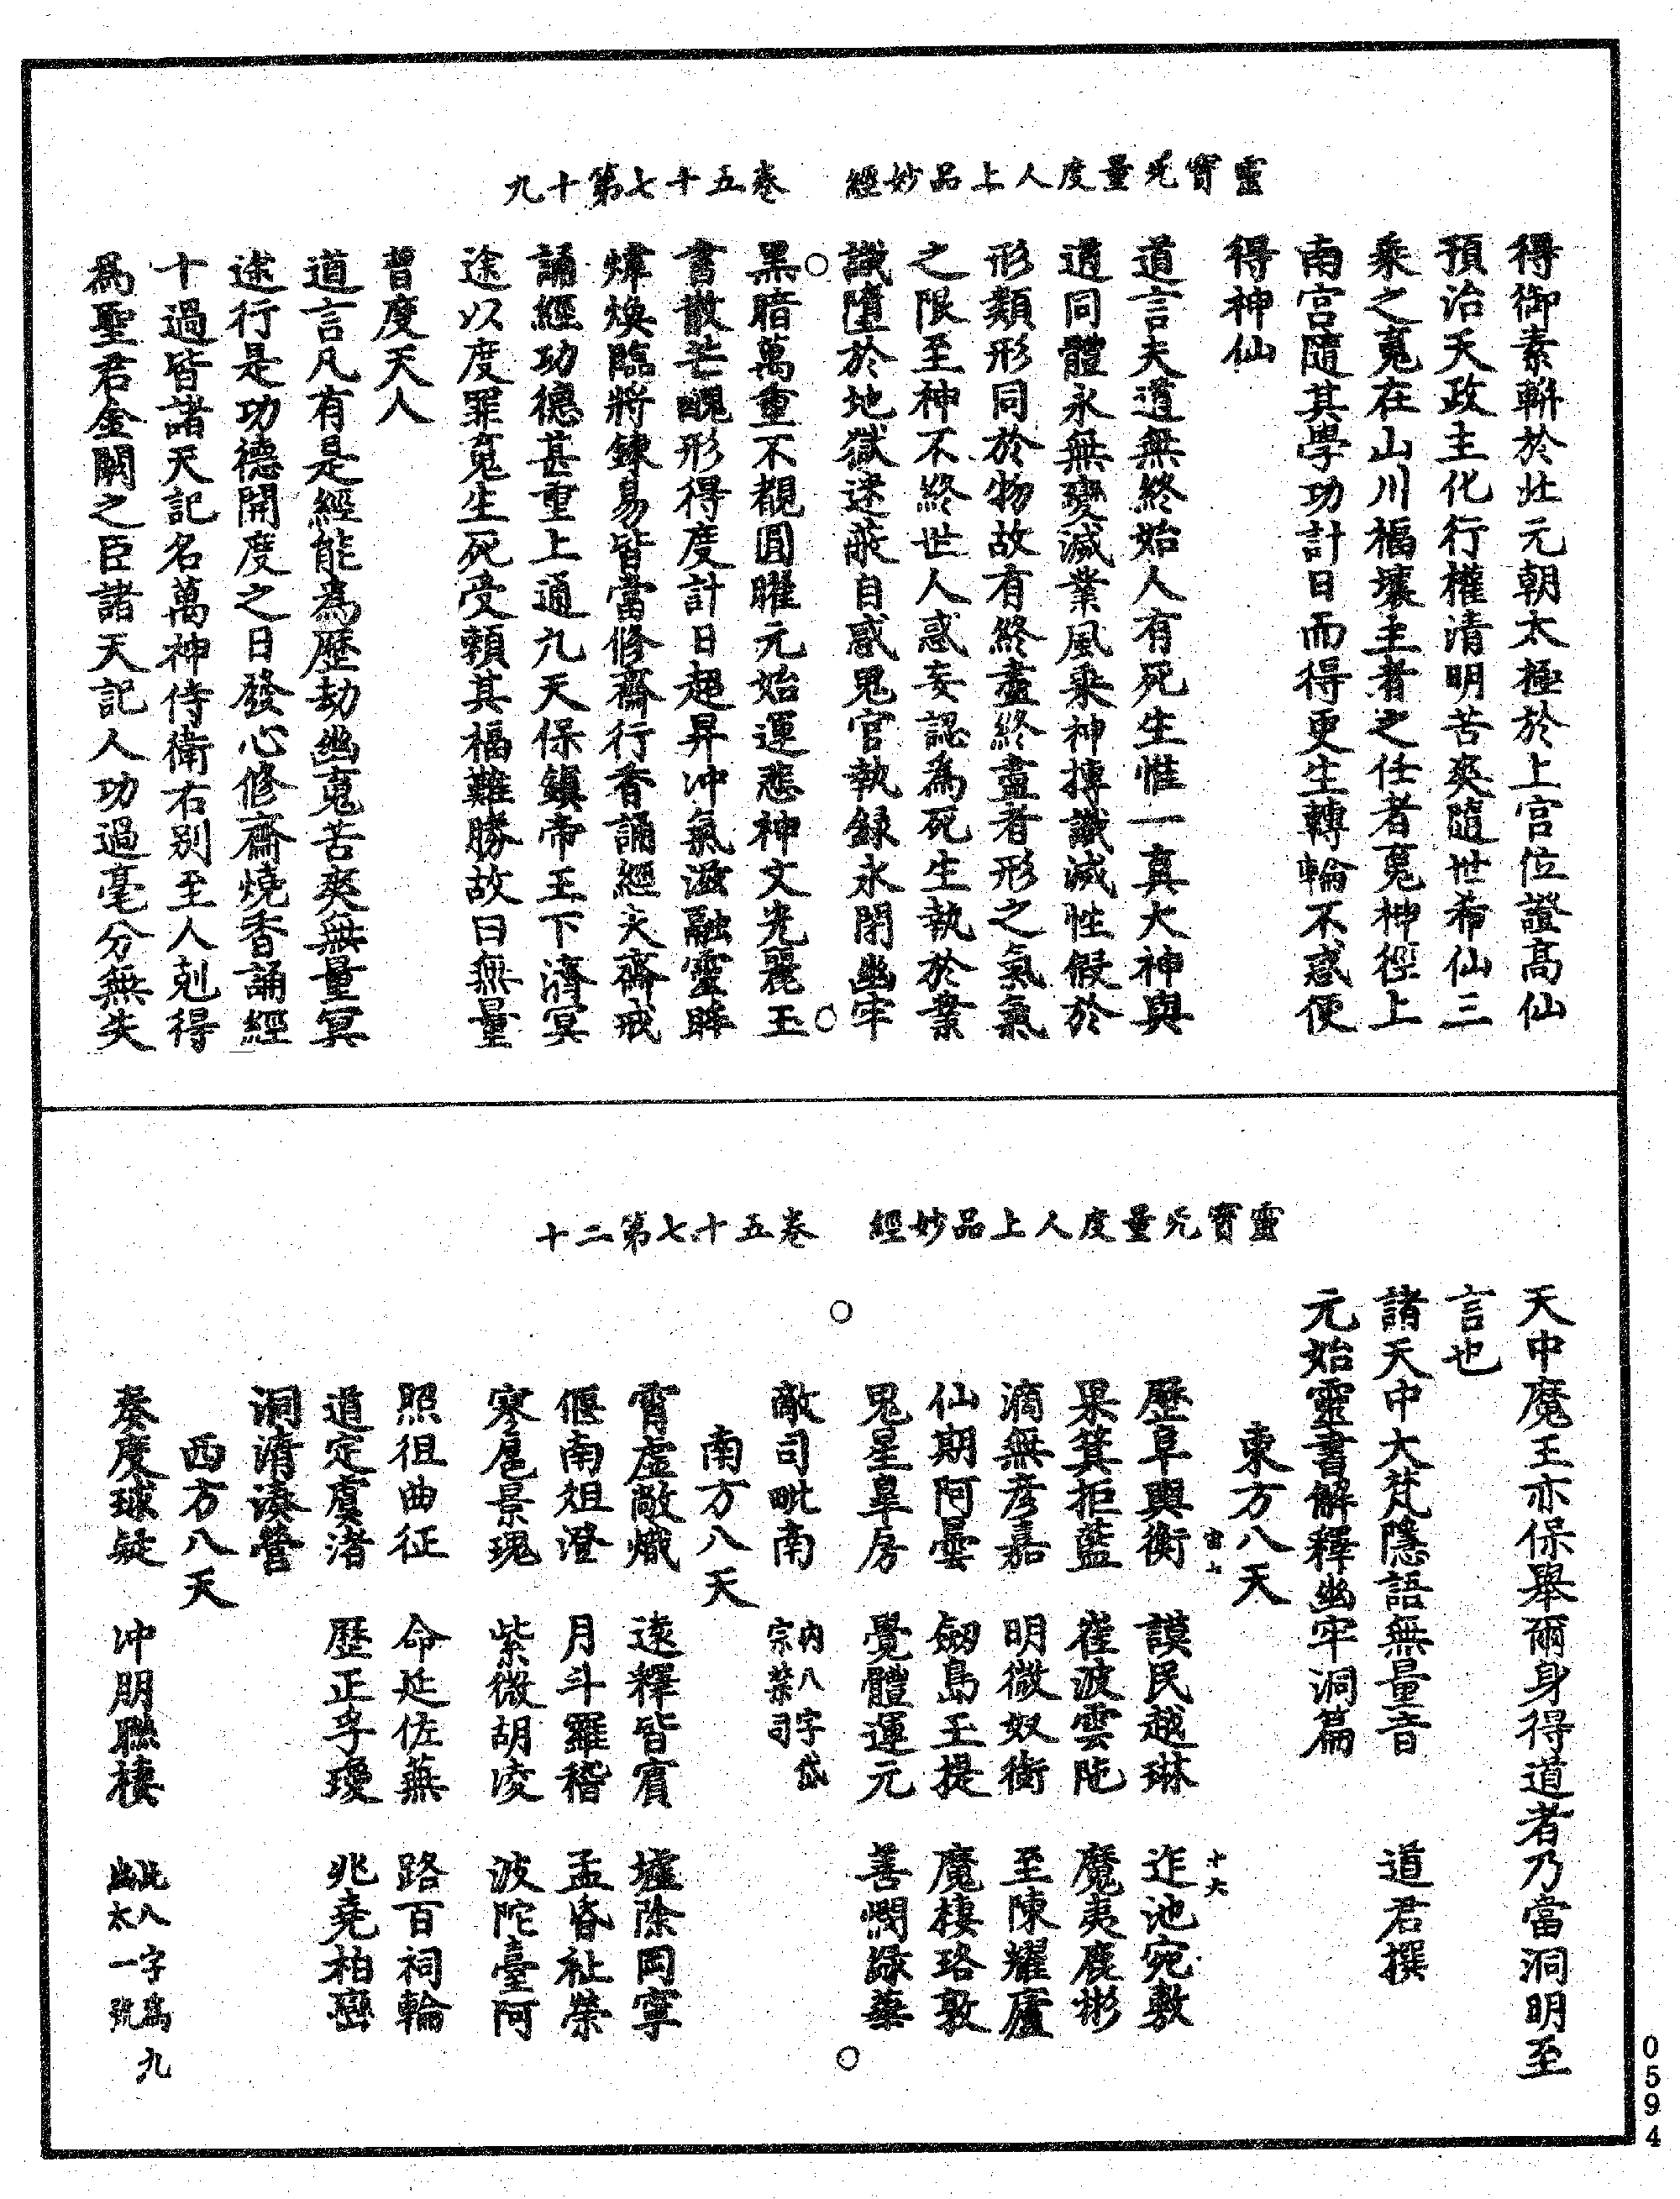 靈寳无量度人上品妙經　卷五十七第十九
得御素輧於北元朝太極於上宮位證高仙
預治天政主化行權清明苦爽隨世希仙三
乘之䰟在山川福壤主者之任者䰟神徑上
南宮隨其學功計日而得更生轉輪不惑便
得神仙
道言夫道無終始人有死生惟一真大神與
道同體永無變滅業風乘神摶識滅性假於
形類形同於物故有終盡終盡者形之氣氣
之限至神不終世人惑妄認爲死生執於業
識墮於地獄迷蔽自惑鬼官執録永閉幽牢
黑暗萬重不覩圓曜元始運悲神文光麗玉
書散芒醜形得度計日超昇冲氣滋融靈眸
煒煥臨將鍊易皆當修齋行香誦經夫齋戒
誦經功德甚重上通九天保鎭帝王下濟冥
途以度罪䰟生死受頼其福難勝故曰無量
普度天人
道言凡有是經能爲歷劫幽䰟苦爽無量冥
途行是功德開度之日發心修齋燒香誦經
十過皆諸天記名萬神侍衛右别至人剋得
爲聖君金闕之臣諸天記人功過毫分無失
靈寳无量度人上品妙經　卷五十七第二十
天中魔王亦保舉爾身得道者乃當洞明至
言也
諸天中大梵隱語無量音　道君撰
元始靈書解釋幽牢洞篇
東方八天
歷阜輿衡　謨民越琳　迮池宛敷
果箕拒藍　崔波雲阤　魔夷扆彬
滴無彦嘉　明微奴衝　至陳耀廬
仙期阿曇　劒島王提　魔棲珞敦
鬼星皐房　覺體運元　善憫緑華
敵司毗南　内八字岱宗禁司
南方八天
霄虛敞熾　遠釋皆賓　墟除岡寧
偃南俎澄　月斗羅稽　孟昏祉榮
寒扈景瑰　紫微胡凌　波陀臺阿
照徂曲征　命延佐蕪　路百祠輪
道定虞渚　歷正孚瓊　兆堯柏巒
洞清湊營
西方八天
奏度球錠　冲朋聮棲　此八字爲九出太一號
0594